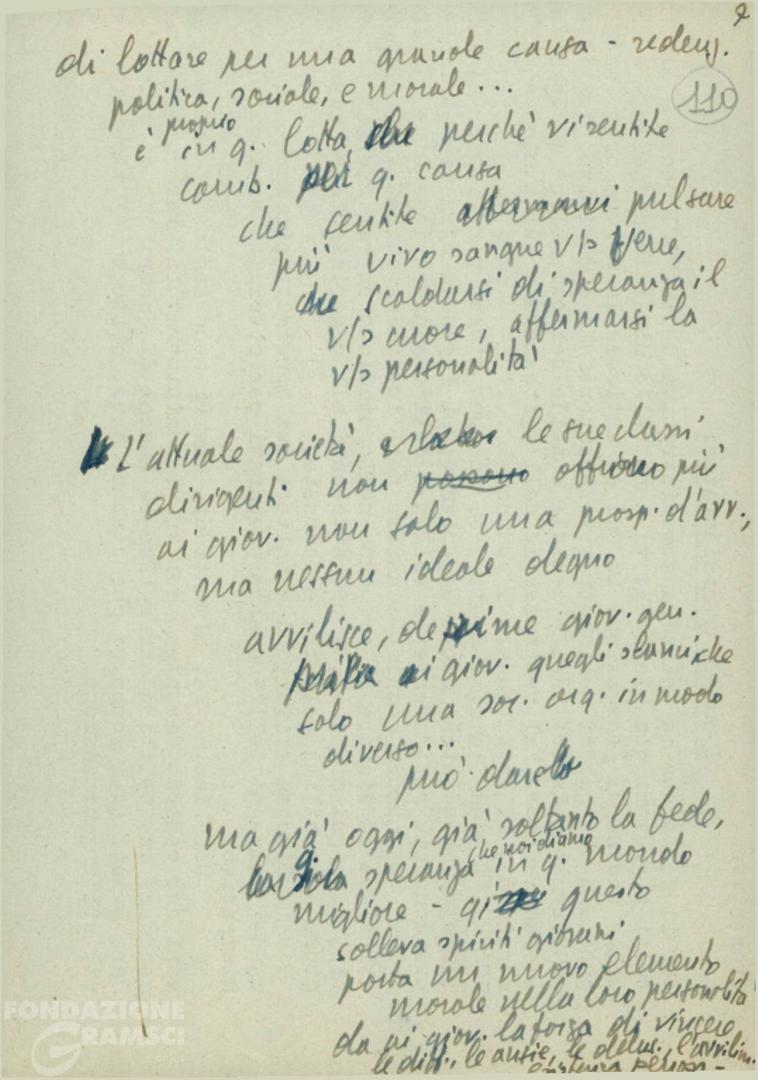 2
110
di lottare per una grande causa - redenz.
politica, sociale, e morale...
è proprio in q. lotta, che perchè vi sentite
comb. per q. causa
che sentite pulsare
più vivo sangue v/s vene,
che scaldarsi di speranza il
v/s cuore, affermarsi la
v/s personalità
L'attuale società, le sue classi
dirigenti non possono offrono più
ai giov. non solo una prosp. d'avv.,
ma nessun ideale degno
avvilisce, deprime giov. gen.
ai giov. quegli slanci che
solo una soc. org. in modo
diverso...
può darello
ma già oggi, già soltanto la fede,
la sola speranza che noi diamo in q. mondo
migliore - già questo
solleva spiriti giovani
porta un nuovo elemento
morale nella loro personalità
da ai giov. la forza di vincere
le diff., le ansie, le delus., l'avvilim.
esistenza
FONDAZIONE
GRAMSCI